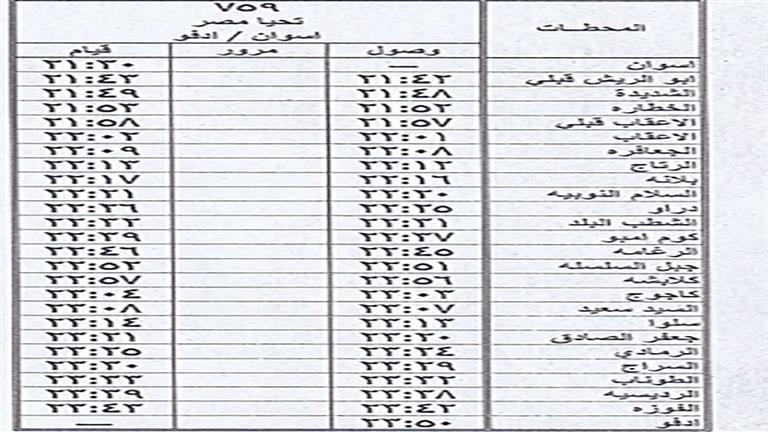 ٧٥٩
المحطات
تحيا مصر
اسوان / ادفو
وصول مرور قيام
اسوان — ٢١:٣٠
ابو الريش قبلي ٢١:٤٢ ٢١:٤٣
الشديدة ٢١:٤٨ ٢١:٤٩
الخطاره ٢١:٥٢ ٢١:٥٣
الاعقاب قبلي ٢١:٥٧ ٢١:٥٨
الاعقاب ٢٢:٠١ ٢٢:٠٢
الجعافره ٢٢:٠٨ ٢٢:٠٩
الرتاج ٢٢:١٢ ٢٢:١٣
بلانه ٢٢:١٦ ٢٢:١٧
السلام النوبيه ٢٢:٢٠ ٢٢:٢١
دراو ٢٢:٢٥ ٢٢:٢٦
الشطب البلد ٢٢:٣١ ٢٢:٣٢
كوم امبو ٢٢:٣٧ ٢٢:٣٩
الرغامه ٢٢:٤٥ ٢٢:٤٦
جبل السلسله ٢٢:٥١ ٢٢:٥٢
كلابشه ٢٢:٥٦ ٢٢:٥٧
كاجوج ٢٣:٠٣ ٢٣:٠٤
السيد سعيد ٢٣:٠٧ ٢٣:٠٨
سلوا ٢٣:١٣ ٢٣:١٤
جعفر الصادق ٢٣:٢٠ ٢٣:٢١
الرمادي ٢٣:٢٤ ٢٣:٢٥
السراج ٢٣:٢٩ ٢٣:٣٠
الطوناب ٢٣:٣٢ ٢٣:٣٣
الرديسيه ٢٣:٣٨ ٢٣:٣٩
الفوزه ٢٣:٤٢ ٢٣:٤٣
ادفو ٢٣:٥٠ —